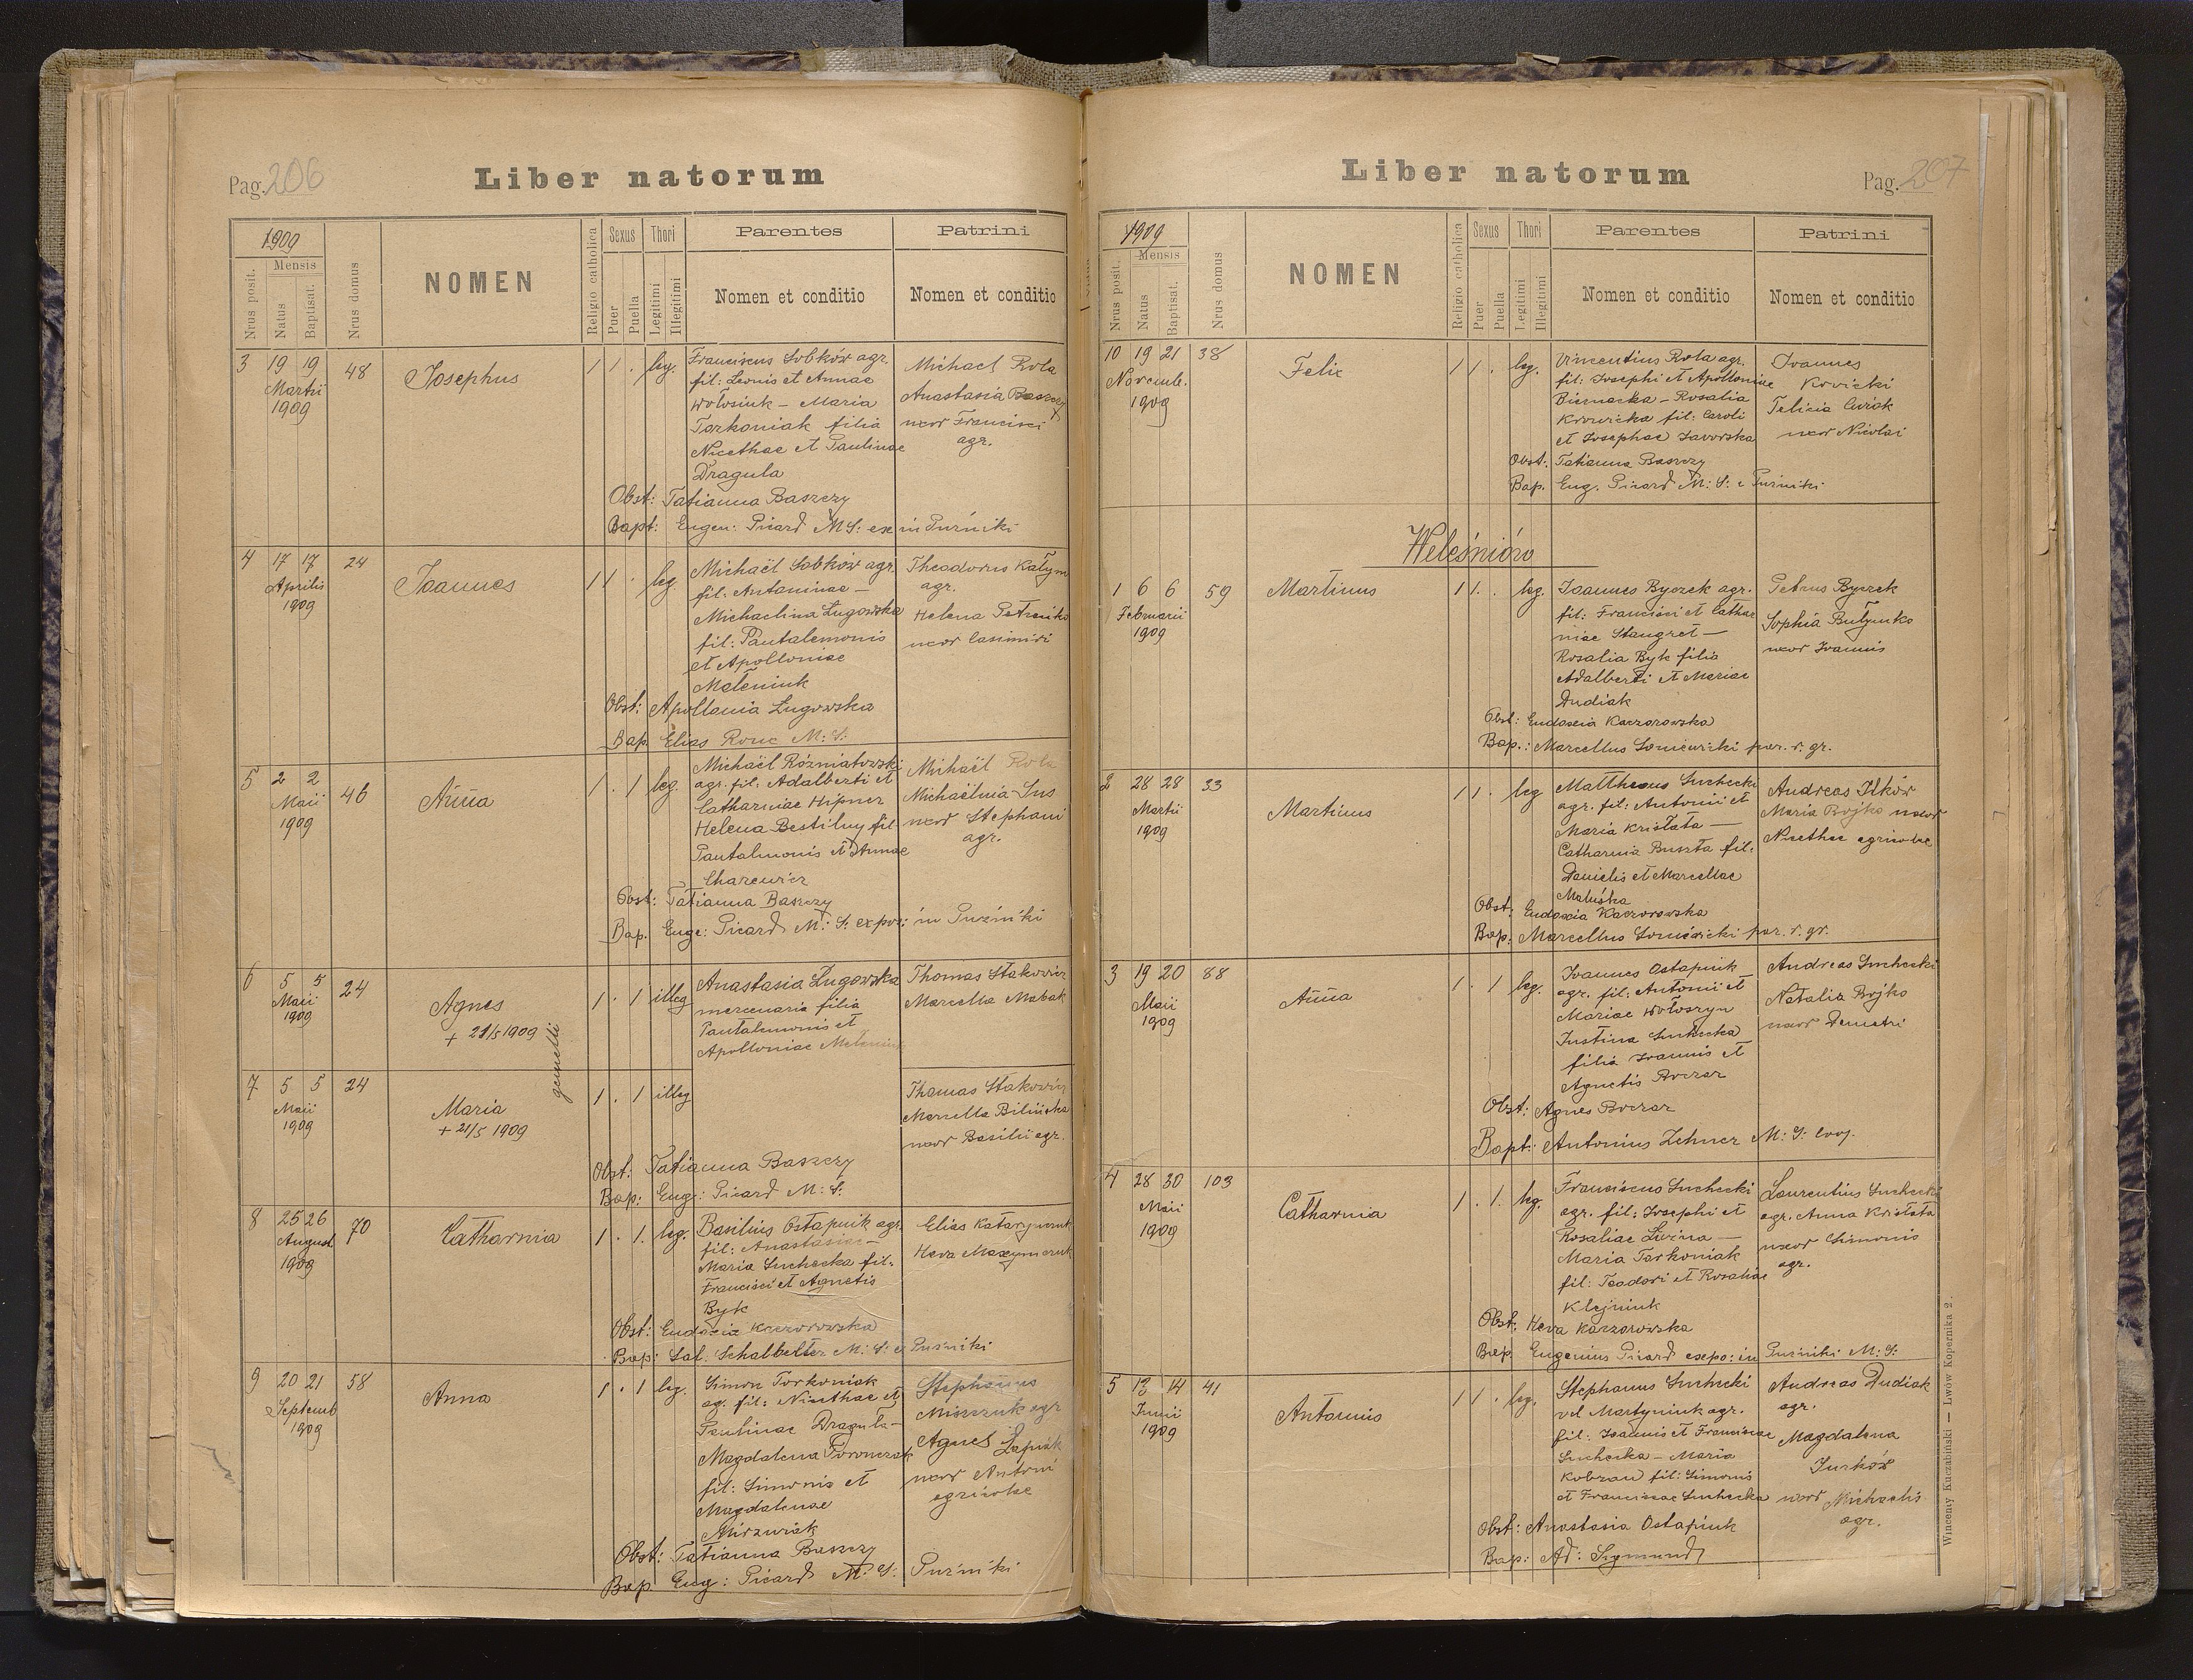 Pag. 206
Liber natorum
1909
Mensis
Nrus posit.
Natus
Baptisat.
Nrus domus
NOMEN
Religio catholica
Sexus
Puer
Puella
Thori
Legitimi
Illegitimi
Parentes
Nomen et conditio
Patrini
Nomen et conditio
3 19 19 48 Josephus 1 1 . leg.
Martii
1909
Franciscus Sobków agr.
fil: Leonis et Annae
Wołosiuk – Maria
Torkoniak filia
Nicethae et Paulinae
Dragula
Michael Rola
Anastasia Baszczy
uxor Francisci
agr.
Obst: Tatianna Baszczy
Bapt: Eugen: Picard M S: ex in Puźniki
4 17 17 24 Joannes 1 1 . leg.
Aprilis
1909
Michaël Sobków agr.
fil: Antoninae –
Michaelina Ługowska
fil: Pantalemonis
et Apolloniae
Meleniuk
Theodorus Katyn
agr.
Helena Petrenko
uxor Casimiri
Obst: Apollonia Ługowska
Bap. Elias Rouc M: S:
5 2 2 46 Anna 1 . 1 leg.
Maii
1909
Michaël Rozniatowski
agr. fil: Adalberti et
Catharinae Hipner
Helena Bestilny fil
Pantalmonis et Annae
Charewicz
Michaël Rola
Michaëlina Sus
uxor Stephani
agr.
Obst: Tatianna Baszczy
Bap. Euge: Picard M: S: expos: in Puźniki
6 5 5 24 Agnes 1 . 1 illeg
Maii
1909
+ 21/5 1909
gemelli
Anastasia Ługowska
mercenaria filia
Pantalemonis et
Apolloniae Meleniuk
Thomas Stakowicz
Marcella Mabak
7 5 5 24 Maria 1 . 1 illeg
Maii
1909
+ 21/5 1909
Thomas Stakowicz
Marcella Bilińska
uxor Basilii agr.
Obst: Tatianna Baszczy
Bap: Eug: Picard M: S:
8 25 26 70 Catharnia 1 . 1. leg.
August
1909
Basilius Ostapiuk agr.
fil: Anastasiae –
Maria Suchecka fil.
Francisci et Agnetis
Byk
Elias Katarynuk
Heva Maxymczuk
Obst: Eudoxia Kaczorowska
Bap: Sal. Schalbetter M: S: e Puźniki
9 20 21 58 Anna 1 . 1 leg.
Septemb
1909
Simon Torkoniak
ag. fil: Nicethae et
Paulinae Dragula –
Magdalena Woronczak
fil: Simonis et
Magdalenae
Mirzwiak
Stephanus
Miszczuk agr
Agnes Łapiak
uxor Antoni
agricolae
Obst: Tatianna Baszczy
Bap. Eug: Picard M: S: Puźniki
Liber natorum
Pag. 207
1909
Mensis
Nrus posit.
Natus
Baptisat.
Nrus domus
NOMEN
Religio catholica
Sexus
Puer
Puella
Thori
Legitimi
Illegitimi
Parentes
Nomen et conditio
Patrini
Nomen et conditio
10 19 21 38 Felix 1 1 . leg.
Novemb.
1909
Vincentius Rola agr.
fil: Josephi et Apolloniae
Biernacka – Rosalia
Krowicka fil: Caroli
et Josephae Jaworska
Joannes
Krowicki
Felicia Cwiok
uxor Nicolai
Obst: Tatianna Baszczy
Bap. Eug. Picard M: S: e Puźniki
Weleśniów
1 6 6 59 Martinus 1 1 . leg.
Februarii
1909
Joannes Byczek agr.
fil: Francisci et Catha
rinae Stangret –
Rosalia Byk filia
Adalberti et Mariae
Dudiak
Petrus Byczek
Sophia Butynko
uxor Joannis
Obst: Eudoxia Kaczorowska
Bap.: Marcellus Soniewicki par. r. gr.
2 28 28 33 Martinus 1 1 . leg
Martii
1909
Mattheus Suchecki
agr. fil: Antonii et
Maria Kristata –
Catharnia Buszta fil:
Danielis et Marcellae
Maluśka
Andreas Ilków
Maria Bojko uxor
Nicethae agricolae
Obst: Eudoxia Kaczorowska
Bap: Marcellus Soniewicki par. r. gr.
3 19 20 88 Anna 1 . 1 leg.
Maii
1909
Joannes Ostapiuk
agr. fil: Antonii et
Mariae Wołoszyn
Justina Suchecka
filia Joannis et
Agnetis Boczar
Andreas Suchecki
Natalia Bojko
uxor Demetri
Obst: Agnes Boczar
Bapt: Antonius Zehner M: S: Coop.
4 28 30 103 Catharnia 1 . 1. leg.
Maii
1909
Franciscus Suchecki
agr. fil: Josephi et
Rosaliae Zwina –
Maria Tarkoniak
fil: Teodori et Rosaliae
Klejniuk
Laurentius Suchecki
agr. Anna Kristata
uxor Simonis
agr.
Obst: Heva Kaczorowska
Bap Eugenius Picard expo: in Puźniki M: S:
5 13 14 41 Antonius 1 1 . leg.
Junii
1909
Stephanus Suchecki
vel Martyniuk agr.
fil: Joannis et Franciscae
Suchecka – Maria
Kobzan fil: Simonis
et Franciscae Suchecka
Andreas Dudiak
agr.
Magdalena
Jurków
uxor Michaelis
agr.
Obst: Anastasia Ostapiuk
Bap: Ad: Sigmund
Wincenty Kuczabiński — Lwów Kopernika 2.